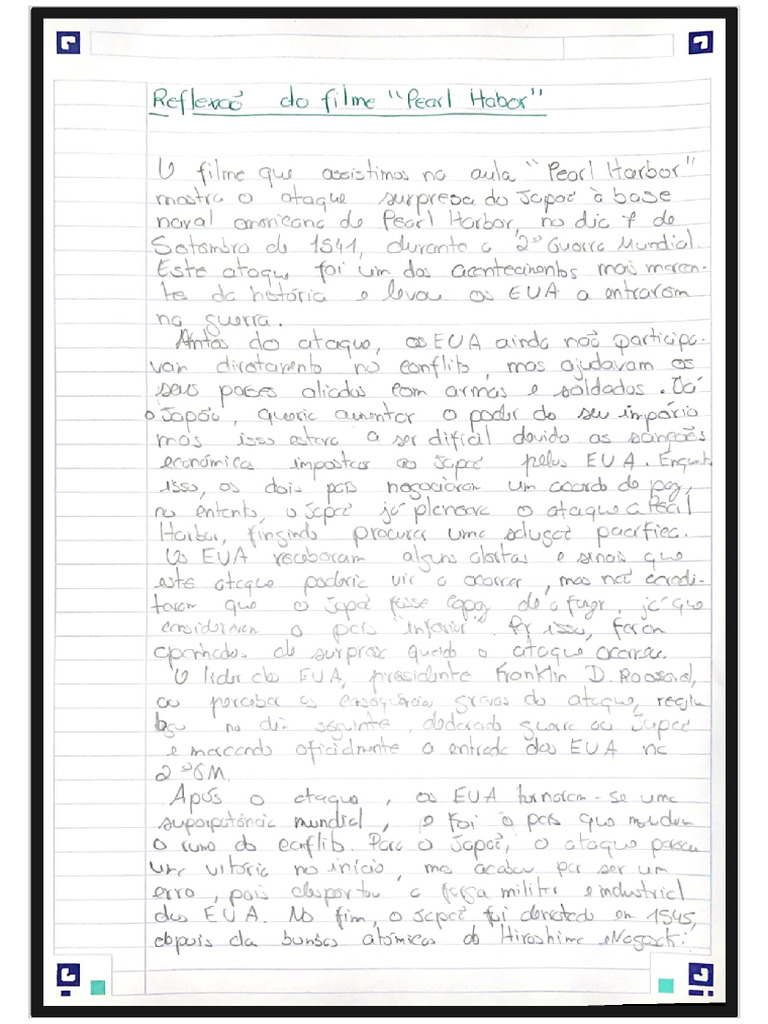 Reflexão do filme "Pearl Habor"
O filme que assistimos na aula "Pearl Harbor"
mostra o ataque surpresa do Japão à base
naval americana de Pearl Harbor, no dia 7 de
Setembro de 1941, durante a 2º Guerra Mundial.
Este ataque foi um dos acontecimentos mais marcan-
te da história e levou os EUA a entrarem
na guerra.
Antes do ataque, os EUA ainda não participa-
vam diretamente no conflito, mas ajudavam os
seus países aliados com armas e soldados. Já
o Japão, queria aumentar o poder do seu império
mas isso estava a ser difícil devido as sanções
económicas impostas ao Japão pelos EUA. Enquanto
isso, os dois país negociavam um acordo de paz,
no entanto, o Japão já planeava o ataque a Pearl
Harbor, fingindo procurar uma solução pacífica.
Os EUA receberam alguns alertas e sinais que
este ataque poderia vir a ocorrer, mas não acredi-
taram que o Japão fosse capaz de o fazer, já que
consideravam o país "inferior". Por isso, foram
apanhados de surpresa quando o ataque ocorreu.
O líder dos EUA, presidente Franklin D. Roosevel,
ao perceber as gravas do ataque,
no dia seguinte, declarado guerra ao Japão
e marcando oficialmente a entrada dos EUA na
2ºGM.
Após o ataque, os EUA tornaram-se uma
superpotência mundial, e foi o país que mudou
o rumo do conflito. Para o Japão, o ataque pareceu
uma vitória no início, mas acabou por ser um
erro, pois despertou a força militar e industrial
dos EUA. No fim, o Japão foi derrotado em 1945,
depois da bombas atómicas de Hiroshima e